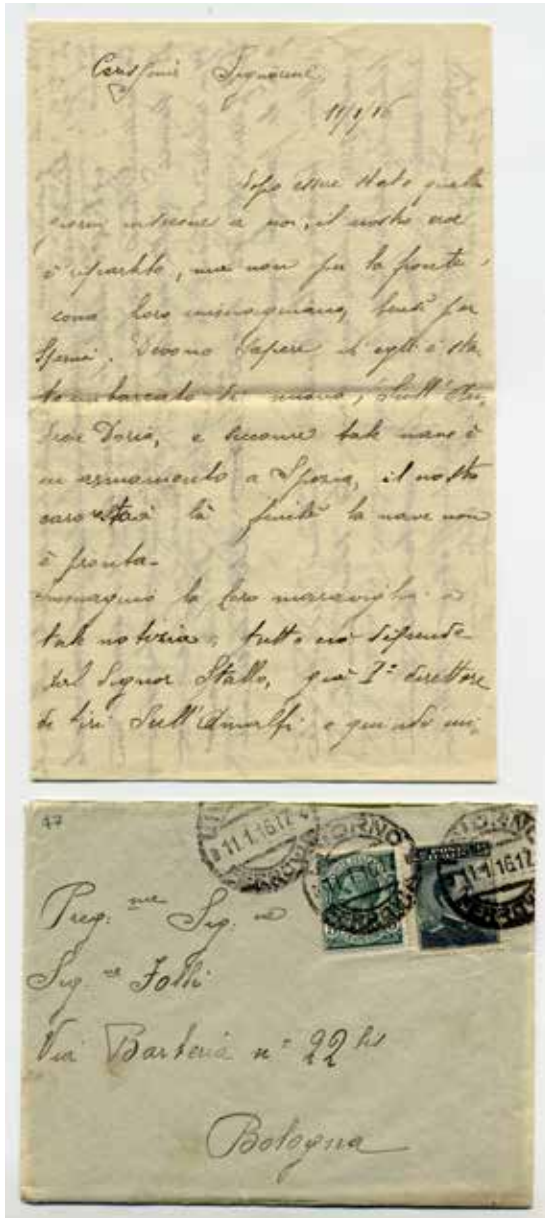 Carissime Signorine,
11/1/16
Dopo essere stato qualche
giorni insieme a noi, il nostro eroe
è ripartito, ma non per la fronte,
come loro immaginano, bensì per
Spezia. Devono sapere ch'egli è sta-
to imbarcato di nuovo, sull'An-
drea Doria, e siccome tale nave è
in armamento a Spezia, il nostro
caro starà là finchè la nave non
è pronta.
Immagino la loro meraviglia a
tale notizia, tutto ciò dipende
dal Signor Stallo, già I° direttore
di tiri sull'Amalfi e quindi mi-
47
11.1.16.17
LIVORNO
11.1.16.17
FERROVIA
LIVORNO
11.1.16.17
FERROVIA
Preg. me Sig. ne
Sig. ne Folli
Via Barberia n° 22 bis
Bologna